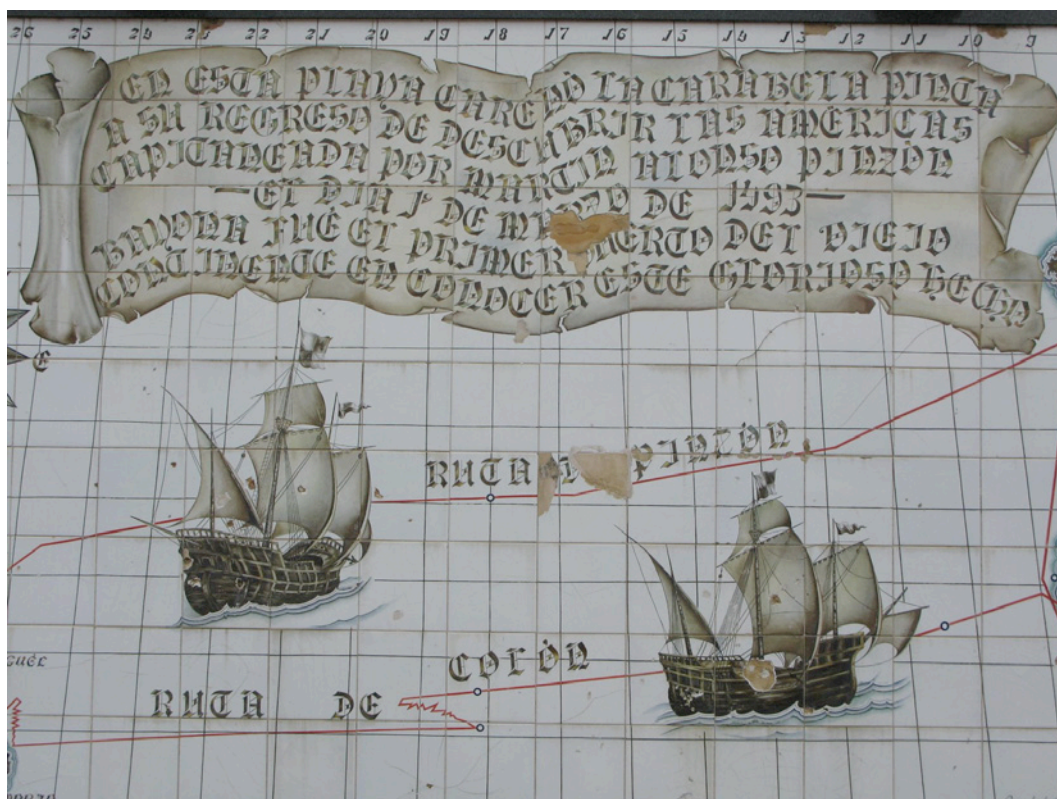 26 25 24 23 22 21 20 19 18 17 16 15 14 13 12 11 10 9
EN ESTA PLAYA CARENÒ LA CARABELA PINTA
A SU REGRESO DE DESCUBRIR LAS AMÈRICAS
CAPITANEADA POR MARTIN ALONSO PINZÒN
—EL DIA 1 DE MARZO DE 1493—
BAYONA FUÈ EL PRIMER PUERTO DEL VIEJO
CONTINENTE EN CONOCER ESTE GLORIOSO HECHO
E
RUTA PINZÒN
GUEL
RUTA DE COLÒN